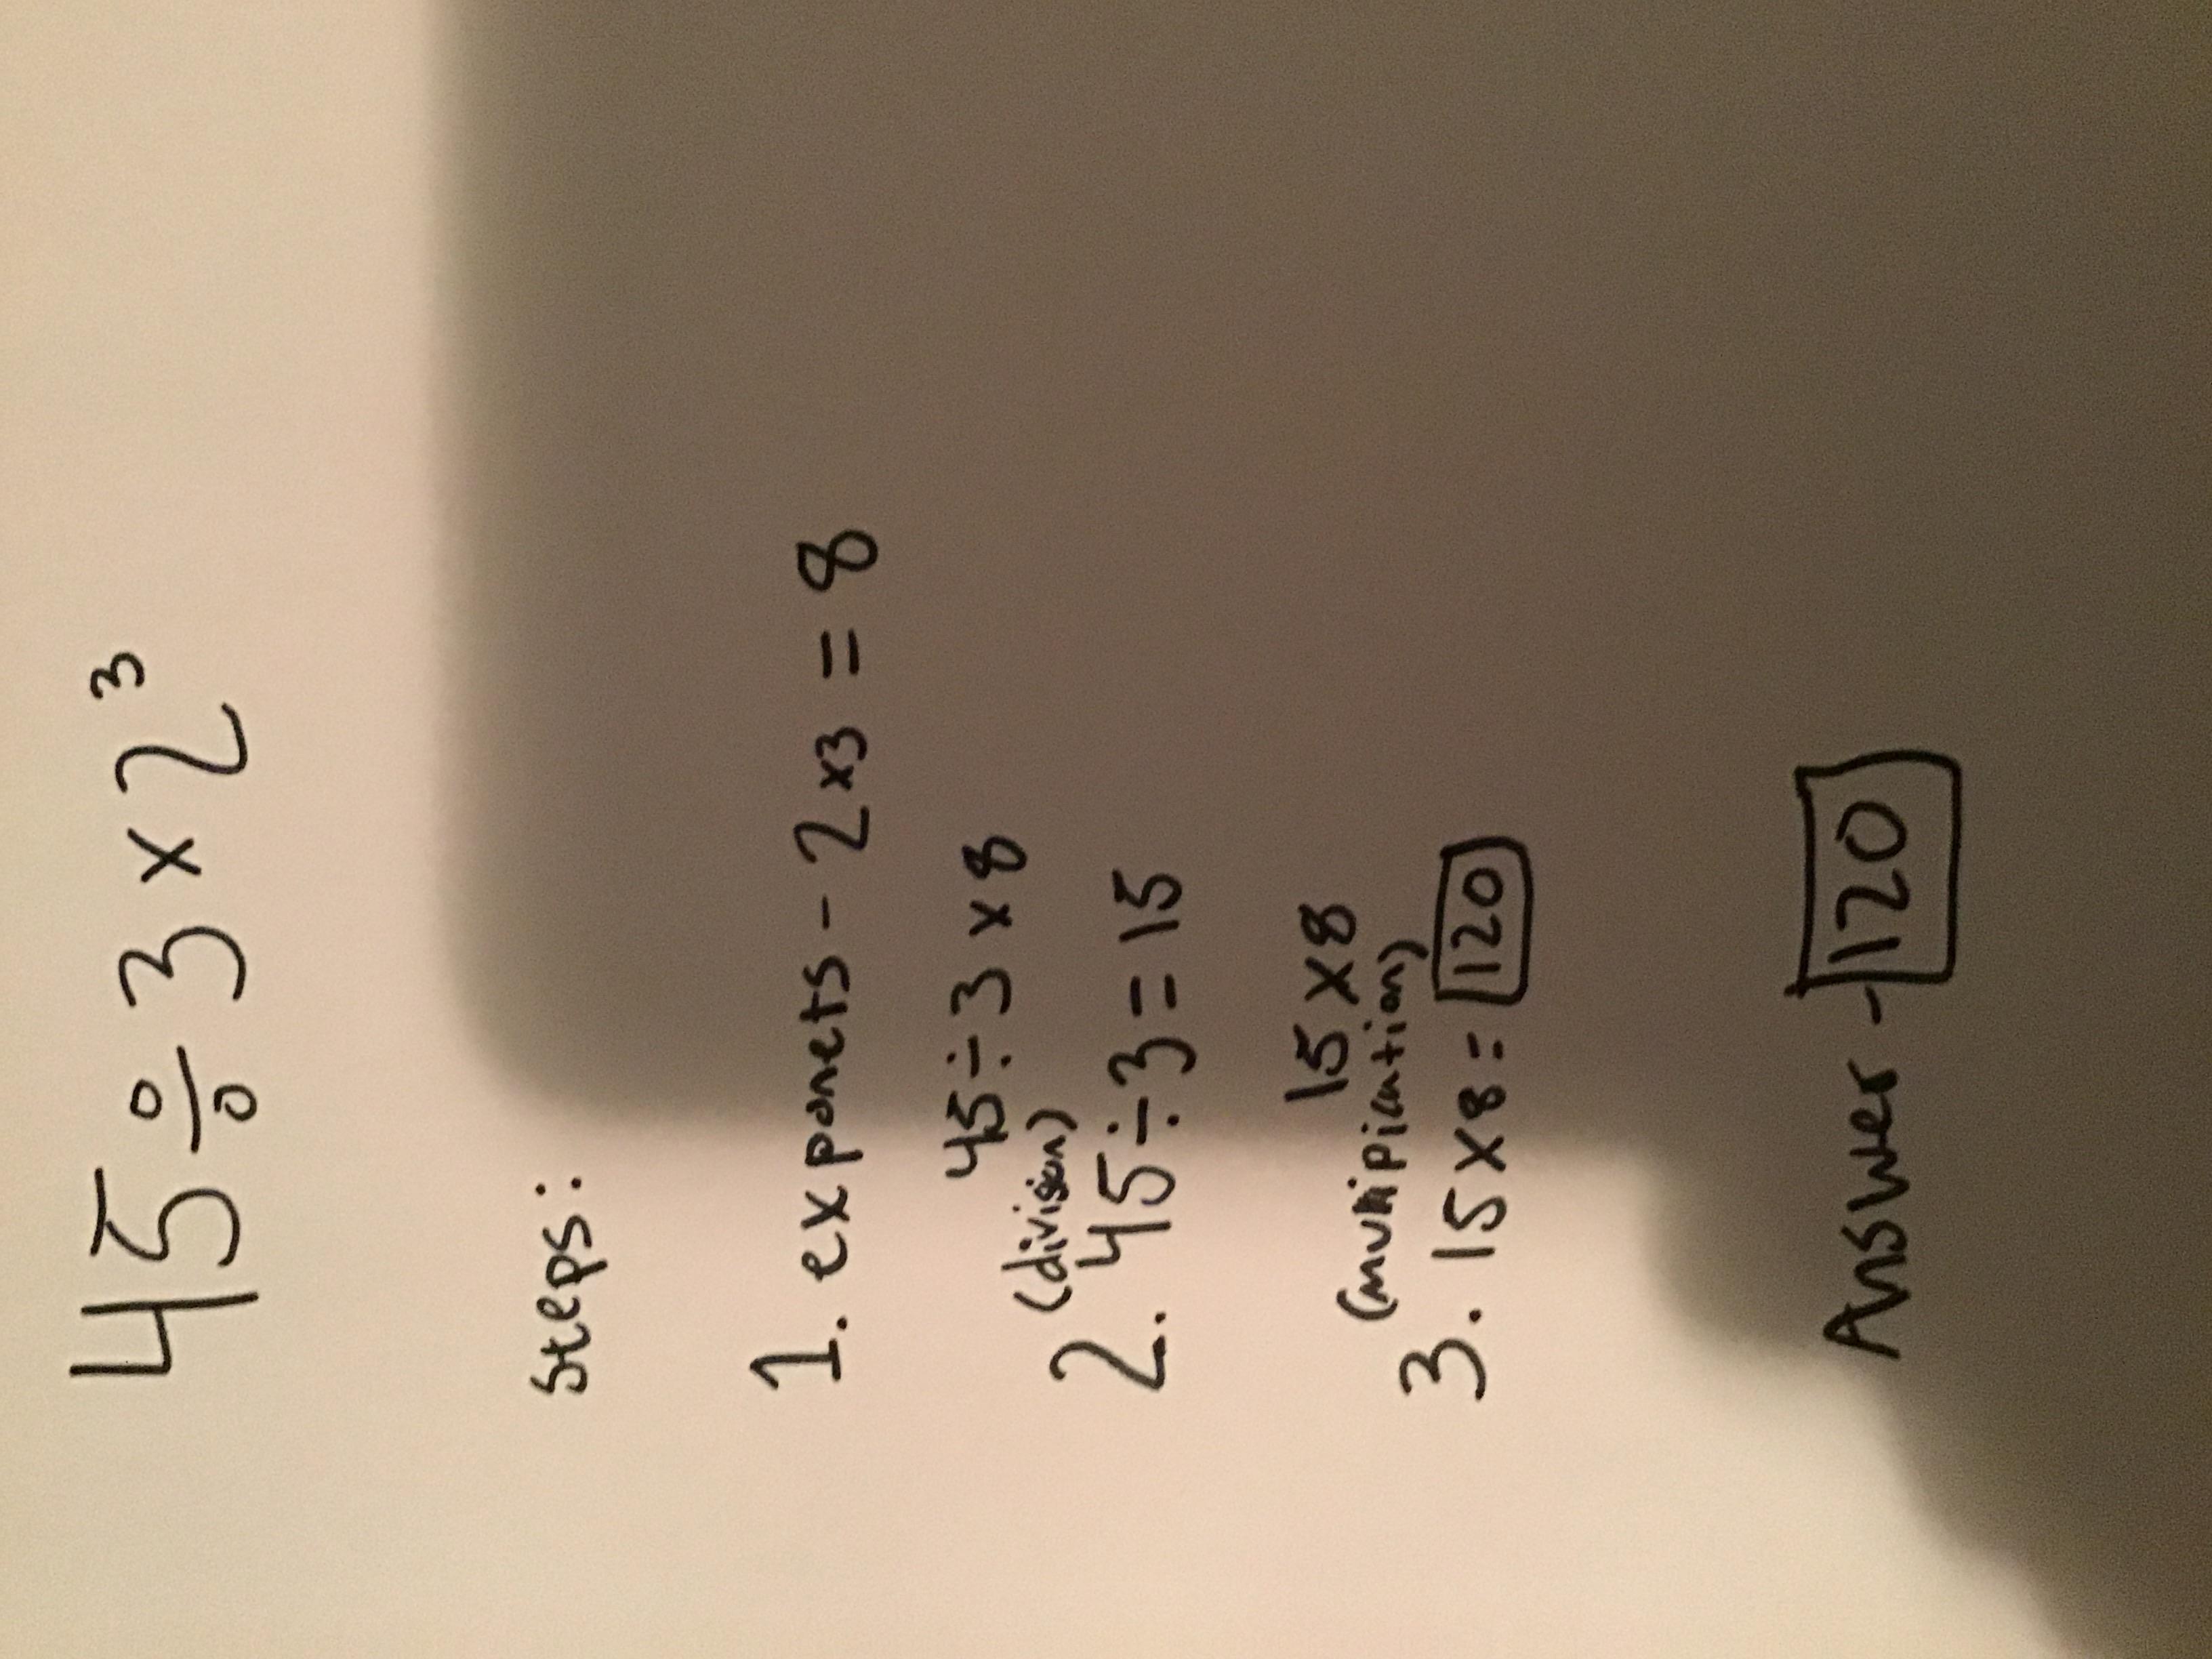 45 ÷ 3 x 2³
Steps:
1. exponets - 2 x3 = 8
45 ÷ 3 x 8
(division)
2. 45 ÷ 3 = 15
15 x 8
(multipication)
3. 15 x 8 = 120
Answer - 120